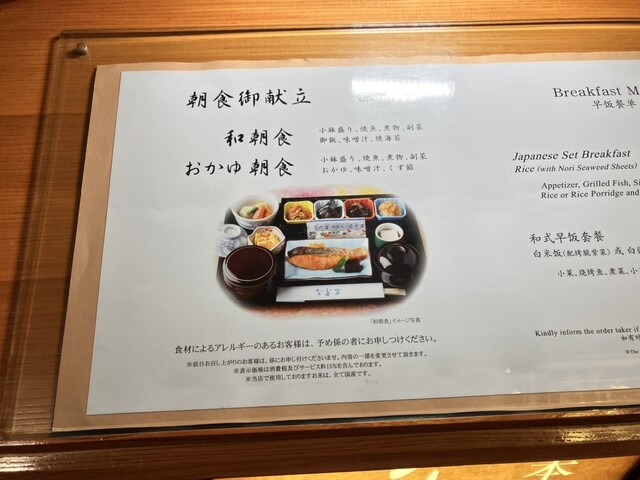 朝食御献立
和朝食
小鉢盛り、焼魚、煮物、副菜
御飯、味噌汁、焼海苔
おかゆ朝食
小鉢盛り、焼魚、煮物、副菜
おかゆ、味噌汁、くず餡
「和朝食」イメージ写真
食材によるアレルギーのあるお客様は、予め係の者にお申しつけください。
※前日お召し上がりのお客様は、係にお申し付けくださいませ。内容の一部を変更させて頂きます。
※表示価格は消費税及びサービス料15%を含んでおります。
※当店で使用しておりますお米は、全て国産です。
Breakfast M
早饭餐单
Japanese Set Breakfast
Rice (with Nori Seaweed Sheets)
Appetizer, Grilled Fish, Si
Rice or Rice Porridge and
和式早饭套餐
白米饭(配烤脱紫菜) 或 白
小菜、烧烤鱼、煮菜、小
Kindly inform the order taker if
如有对
※The